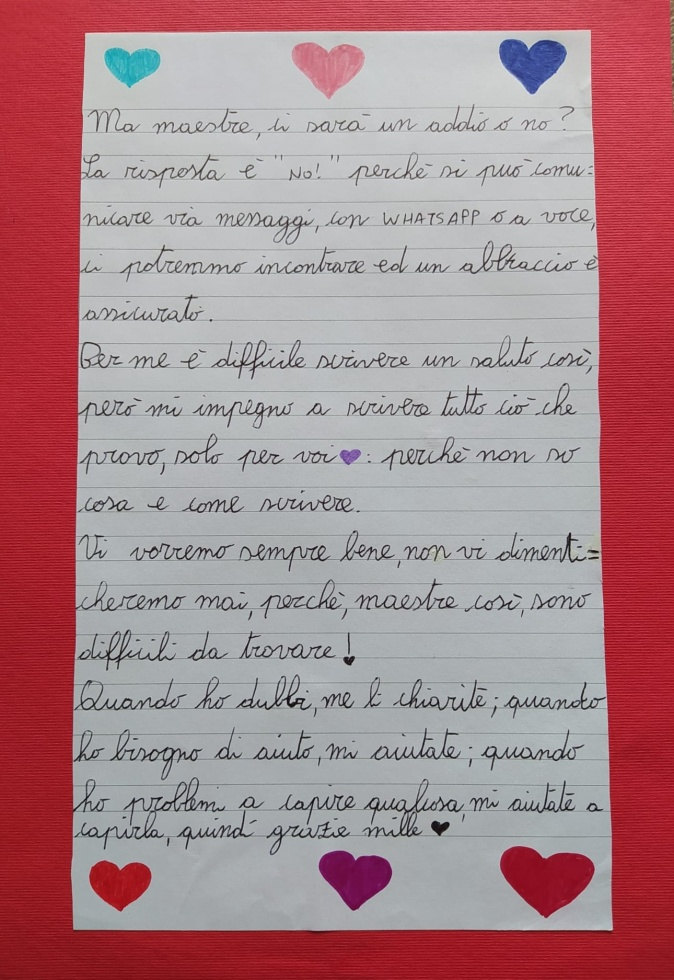 Ma maestre, ci sarà un addio o no?
La risposta è "No!" perchè si può comu=
nicare via messaggi, con WHATSAPP o a voce,
ci potremmo incontrare ed un abbraccio è
assicurato.
Per me è difficile scrivere un saluto così,
però mi impegno a scrivere tutto ciò che
provo, solo per voi💜: perchè non so
cosa e come scrivere.
Vi vorremo sempre bene, non vi dimenti=
cheremo mai, perchè, maestre così, sono
difficili da trovare!
Quando ho dubbi, me li chiarite; quando
ho bisogno di aiuto, mi aiutate; quando
ho problemi a capire qualcosa, mi aiutate a
capirla, quindi grazie mille ♥